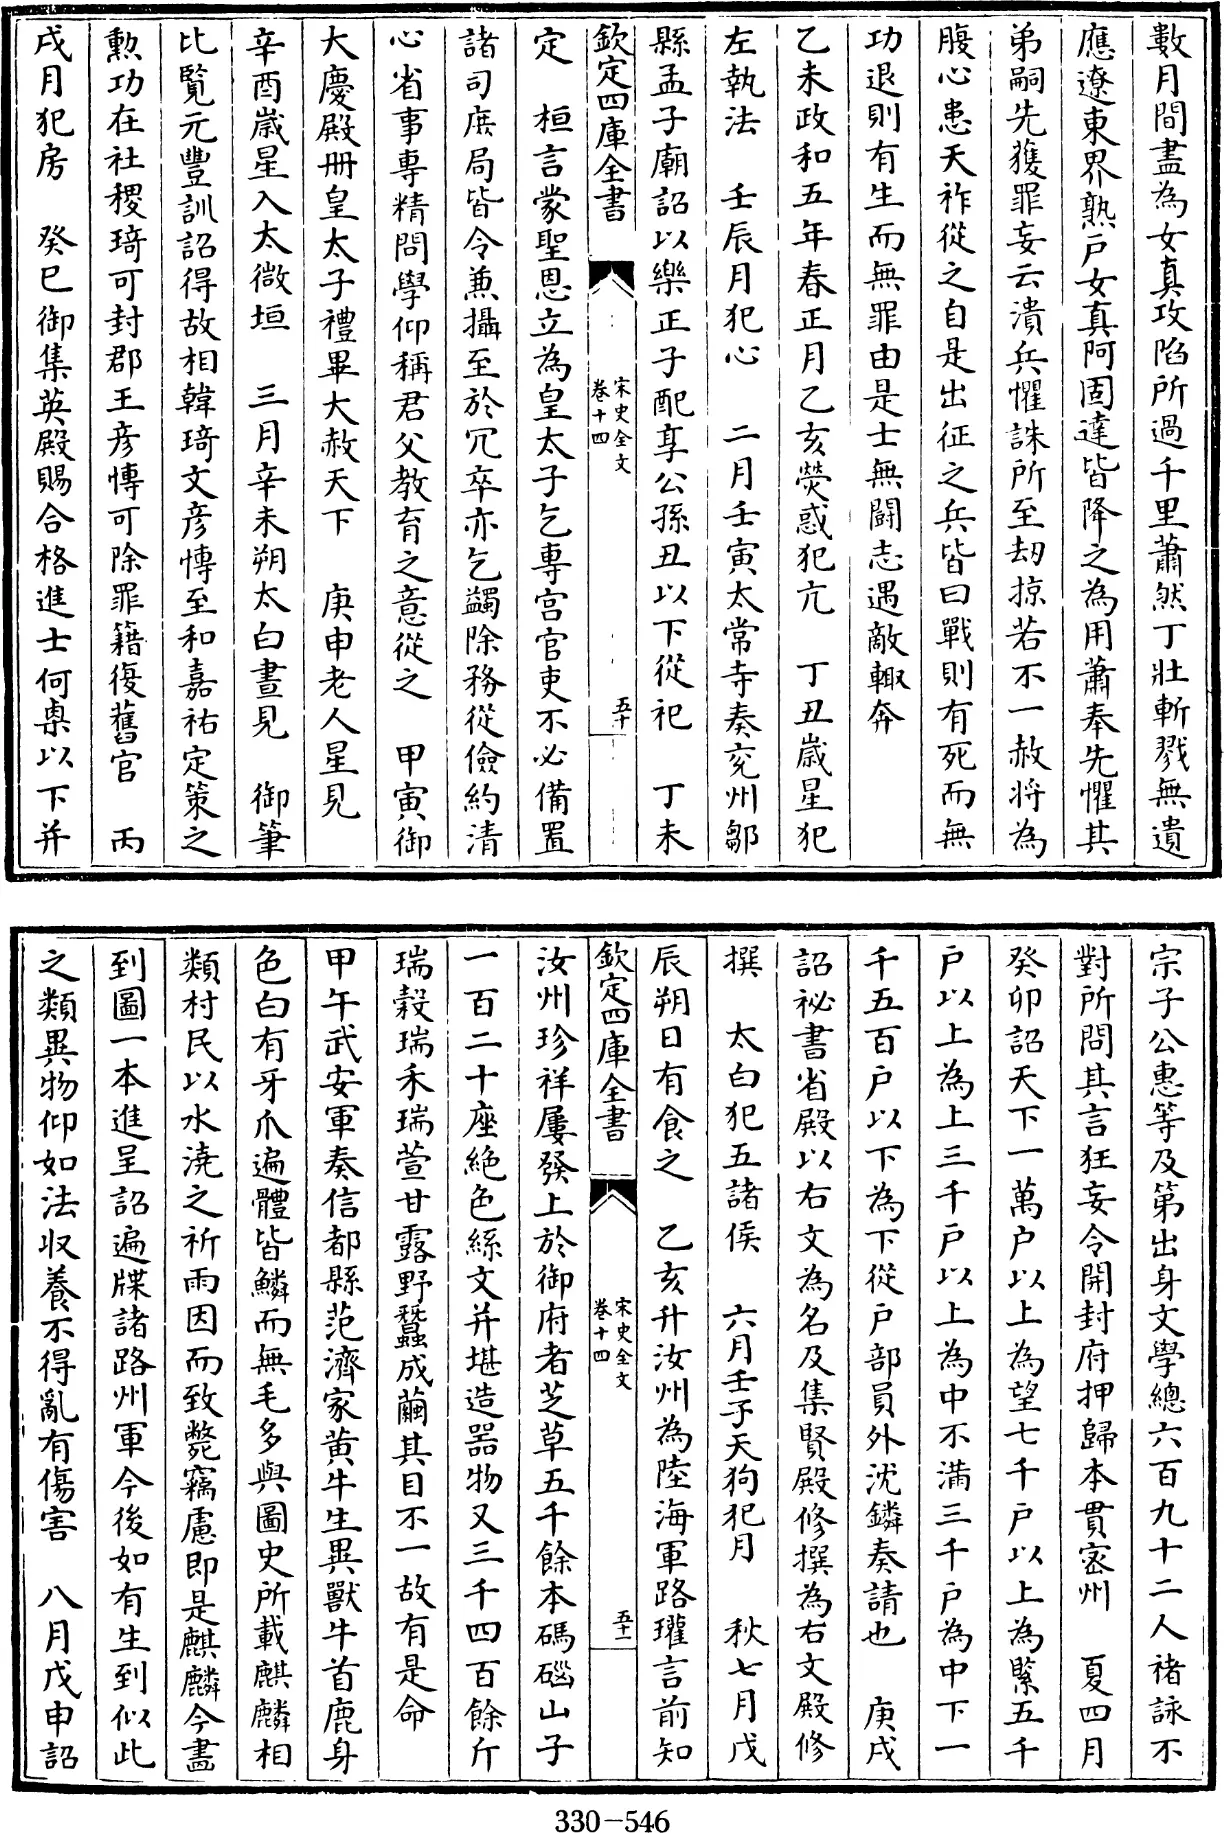 數月間盡為女真攻陷所過千里蕭然丁壯斬戮無遺
應遼東界熟戸女真阿固達皆降之為用蕭奉先懼其
弟嗣先獲罪妄云潰兵懼誅所至刧掠若不一赦將為
腹心患天祚從之自是出征之兵皆曰戰則有死而無
功退則有生而無罪由是士無鬬志遇敵輙奔
乙未政和五年春正月乙亥熒惑犯亢　丁丑嵗星犯
左執法　壬辰月犯心　二月壬寅太常寺奏兖州鄒
縣孟子廟詔以樂正子配享公孫丑以下從祀　丁未
欽定四庫全書　宋史全文　卷十四　五十
定　桓言蒙聖恩立為皇太子乞專宫官吏不必備置
諸司庶局皆令兼攝至於冗卒亦乞蠲除務從儉約清
心省事専精問學仰稱君父教育之意從之　甲寅御
大慶殿冊皇太子禮畢大赦天下　庚申老人星見
辛酉嵗星入太微垣　三月辛未朔太白晝見　御筆
比覽元豐訓詔得故相韓琦文彦愽至和嘉祐定策之
勲功在社稷琦可封郡王彦愽可除罪籍復舊官　丙
戌月犯房　癸巳御集英殿賜合格進士何㮚以下并
宗子公惠等及第出身文學總六百九十二人禇詠不
對所問其言狂妄令開封府押歸本貫宻州　夏四月
癸卯詔天下一萬户以上為望七千戸以上為緊五千
戸以上為上三千戸以上為中不滿三千戸為中下一
千五百戸以下為下從戸部員外沈鏻奏請也　庚戌
詔祕書省殿以右文為名及集賢殿修撰為右文殿修
撰　太白犯五諸侯　六月壬子天狗犯月　秋七月戊
辰朔日有食之　乙亥升汝州為陸海軍路瓘言前知
欽定四庫全書　宋史全文　卷十四　五十一
汝州珍祥屢發上於御府者芝草五千餘本碼碯山子
一百二十座絶色絲文并堪造器物又三千四百餘斤
瑞糓瑞禾瑞萱甘露野蠶成繭其目不一故有是命
甲午武安軍奏信都縣范濟家黄牛生異獸牛首鹿身
色白有牙爪遍體皆鱗而無毛多與圖史所載麒麟相
類村民以水澆之祈雨因而致斃竊慮即是麒麟今畵
到圖一本進呈詔遍牒諸路州軍今後如有生到似此
之類異物仰如法収養不得亂有傷害　八月戊申詔
330-546